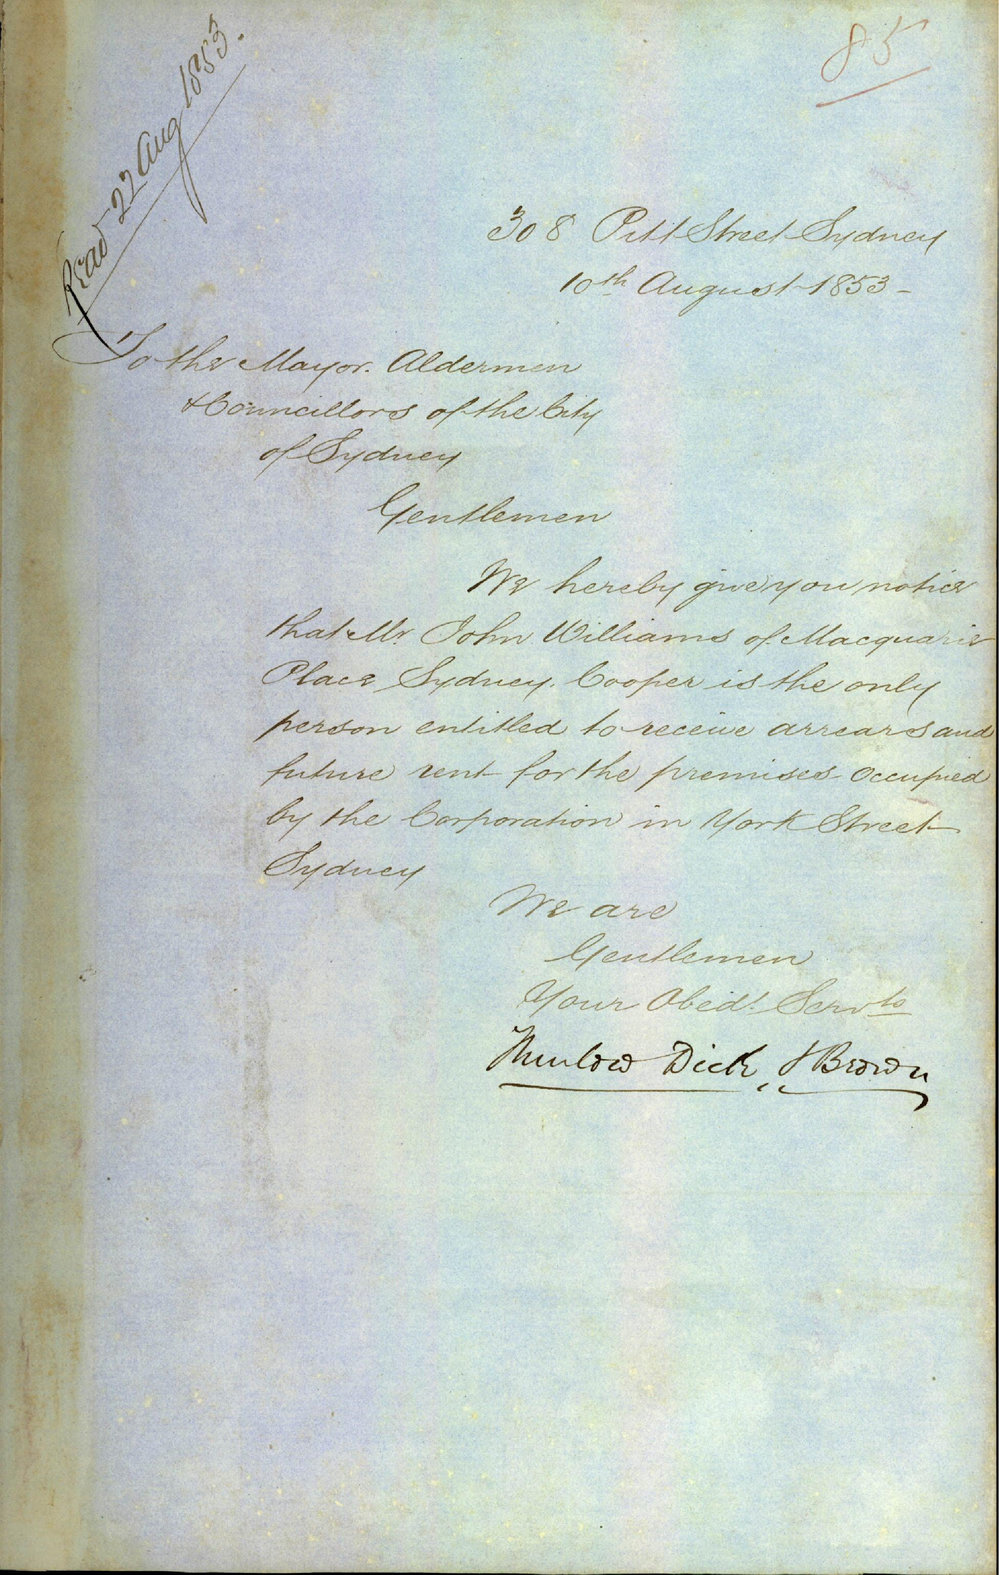 Read 22 Aug 1853.
85
308 Pitt Street Sydney
10th August 1853 -
To the Mayor. Aldermen
& Councillors of the City
of Sydney
Gentlemen
We hereby give you notice
that Mr. John Williams of Macquarie
Place Sydney. Cooper is the only
person entitled to receive arrears and
future rent for the premises occupied
by the Corporation in York Street
Sydney
We are
Gentlemen
Your Obedt. Servts
Thurlow Dick, & Brown